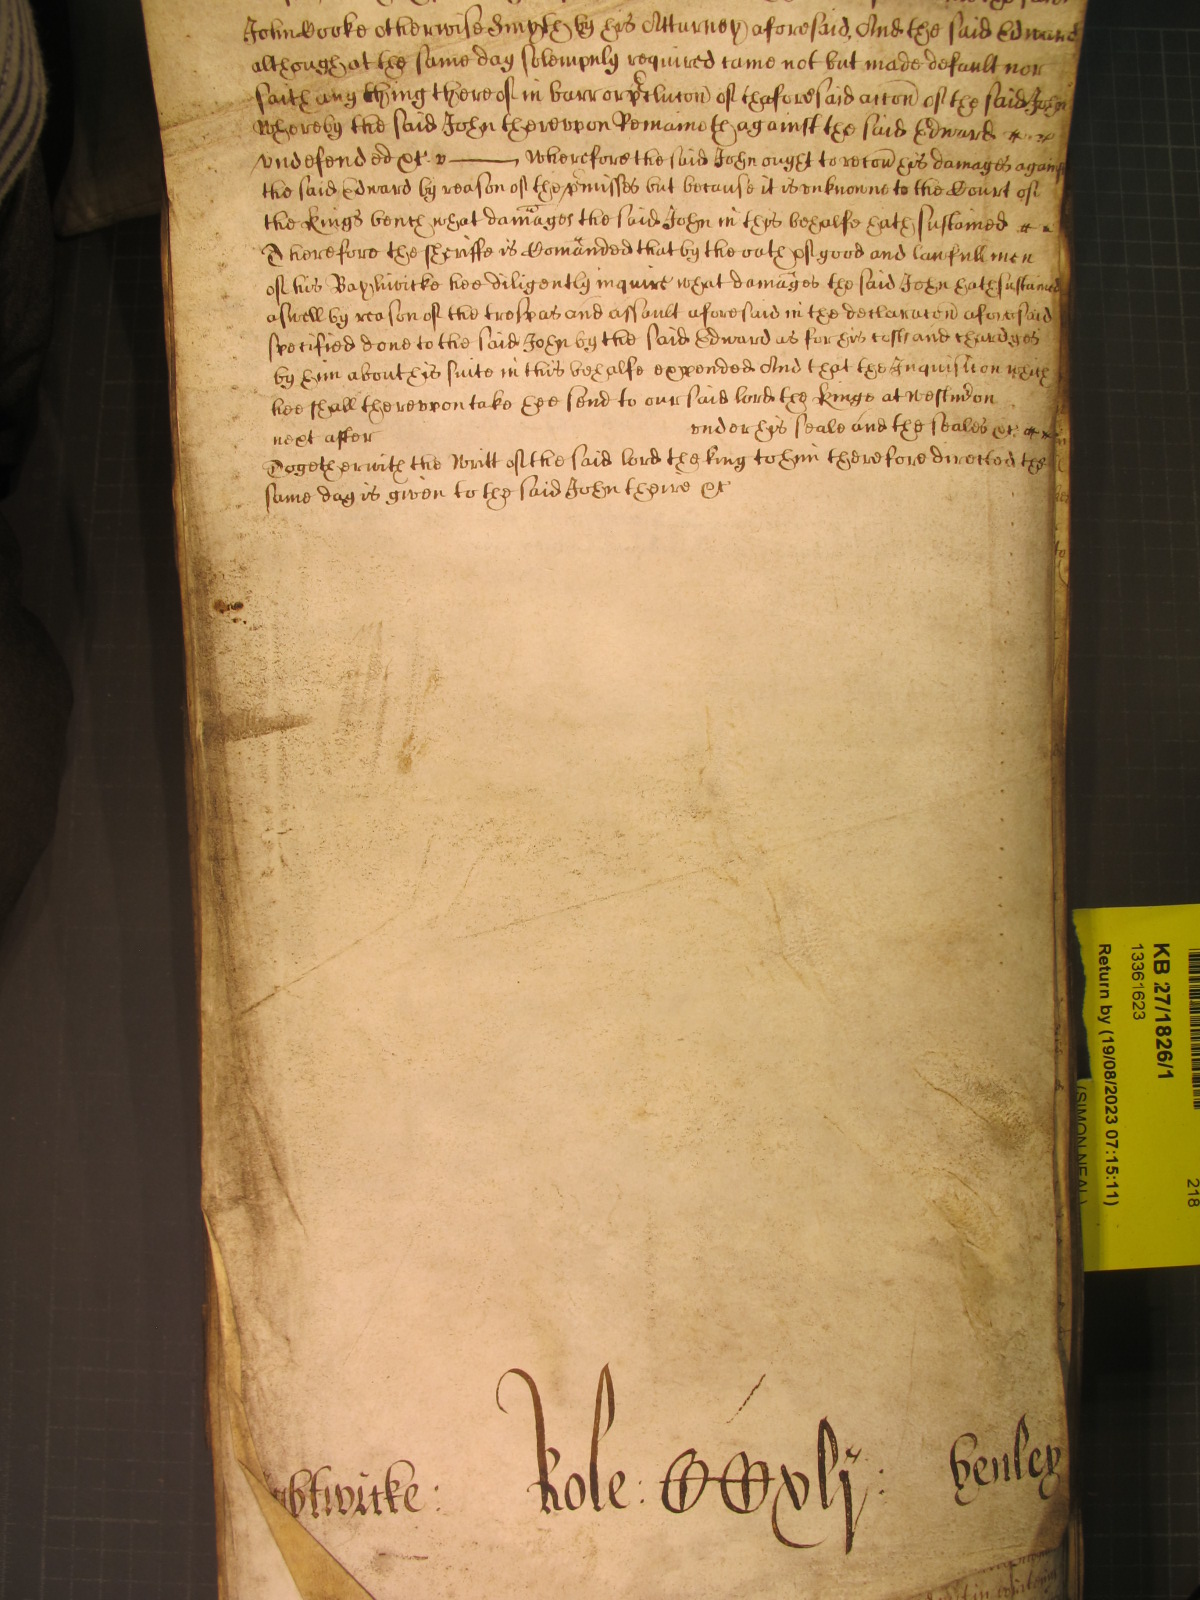 John Cooke otherwise Smyth by his Atturney aforesaid, And the said Edward
although at the same day solempnly required came not but made default nor
saith any thing thereof in barr or p̄clucon̄ of thaforesaid accon̄ of the said John
Whereby the said John therevpon Remaineth against the said Edward
vndefended &c. Wherefore the said John ought to recoū his damages against
the said Edward by reason of the p̄misses but because it is vnknowne to the Court of
the kings bench what damages the said John in this behalfe hath sustained
Therefore the sheriffe is Comānded that by the oath of good and lawfull men
of his Baylywicke hee diligently inquire what damages the said John hath sustained
aswell by reason of the trespas and assault aforesaid in the declaracon̄ aforesaid
specified done to the said John by the said Edward as for his costs and chardges
by him about his suite in this behalfe expended And that the Inquisition which
hee shall therevpon take hee send to our said lord the Kinge at Westm̄ on
next after vnder his seale and the seales &c.
Together with the Writt of the said lord the king to him therefore directed the
same day is given to the said John theire &c
htwicke: Role: CCxlj: henley
KB 27/1826/1
13361623
Return by (19/08/2023 07:15:11)
(SIMON NEAL)
218